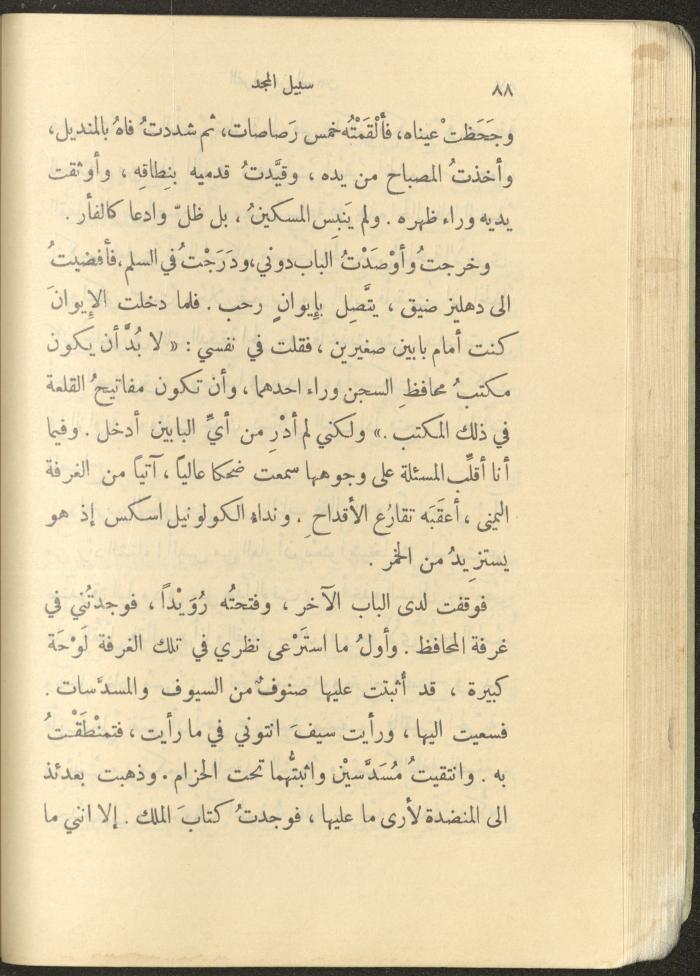 ٨٨
سبيل المجد
وجَحَظتْ عيناه، فأَلْقَمْتُه خمس رَصاصات، ثم شددتُ فاهُ بالمنديل،
وأخذتُ المصباح من يده ، وقيَّدتُ قدميه بنِطاقِه ، وأوثقت
يديه وراء ظهره . ولم يَنبِس المسكينُ ، بل ظلّ وادعا كالفأر .
وخرجتُ وأوْصَدْتُ الباب دوني، ودَرَجْتُ في السلم، فأفضيتُ
الى دهليز ضيق ، يتَّصِل بإِيوانٍ رحب . فلما دخلت الإِيوانَ
كنت أمام بابين صغيرين ، فقلت في نفسي : « لا بُدَّ أن يكون
مكتبُ محافظِ السجن وراء احدهما ، وأن تكون مفاتيحُ القلعة
في ذلك المكتب .» ولكني لم أدْرِ من أيِّ البابين أدخل . وفيما
أنا أقلِّب المسئلة على وجوهها سمعت ضحكا عالياً ، آتياً من الغرفة
اليمنى ، أعقَبَه تقارُع الأقداحِ . ونداء الكولونيل اسكس إذ هو
يستزيدُ من الخمر .
فوقفت لدى الباب الآخر ، وفتحتُه رُوَيْداً ، فوجدتُني في
غرفة المحافظ . وأولُ ما استَرْعى نظري في تلك الغرفة لَوْحَة
كبيرة ، قد أُثبتت عليها صنوفٌ من السيوف والمسدَّسات .
فسعيت اليها ، ورأيت سيفَ انتوني في ما رأيت ، فتمنْطَقْتُ
به . وانتقيتُ مُسَدَّسيْن واثبتُّهما تحت الحزام . وذهبت بعدئذ
الى المنضدة لأرى ما عليها ، فوجدتُ كتابَ الملك . إلا انني ما